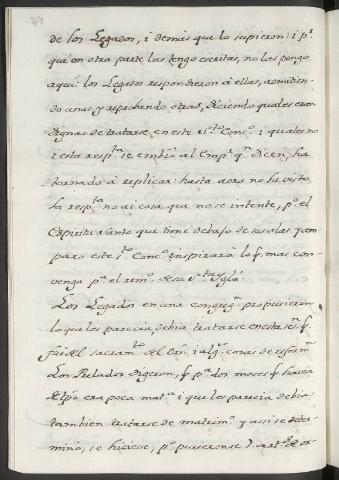 de los Legados, i demas que lo supieron: i pr.
que en otra parte las tengo escritas, no las pongo
aqui: los Legados respondieron à ellas, admitien-
do unas, y reprobando otras, diciendo quales eran
dignas de tratarse en este Sto. Conco. i quales no
i esta respta. se embió al Empr. qn. dicen, ha
tornado à replicar: hasta aora no he visto
la respta. no ai cosa que no se intente, po. el
Espiritu Santo que tiene debajo de sus alas y am-
paro este Sto. Conco. inspirarà lo q. mas con-
venga pa. el remo. de su Sta. Yglā.
Los Legados en una congregn. propusieron
lo que les parecia, debia tratarse en esta sesn. q.
fue del sacramto. del Orn. i algs. cosas de reformn.
Los Prelados digeron, q. pa. dos meses q. havia
de tpo. era poca mata. i que les parecia debia
tambien tratarse de matrimo. y assi se deter-
minó, se hiciesse, po. pusieronse